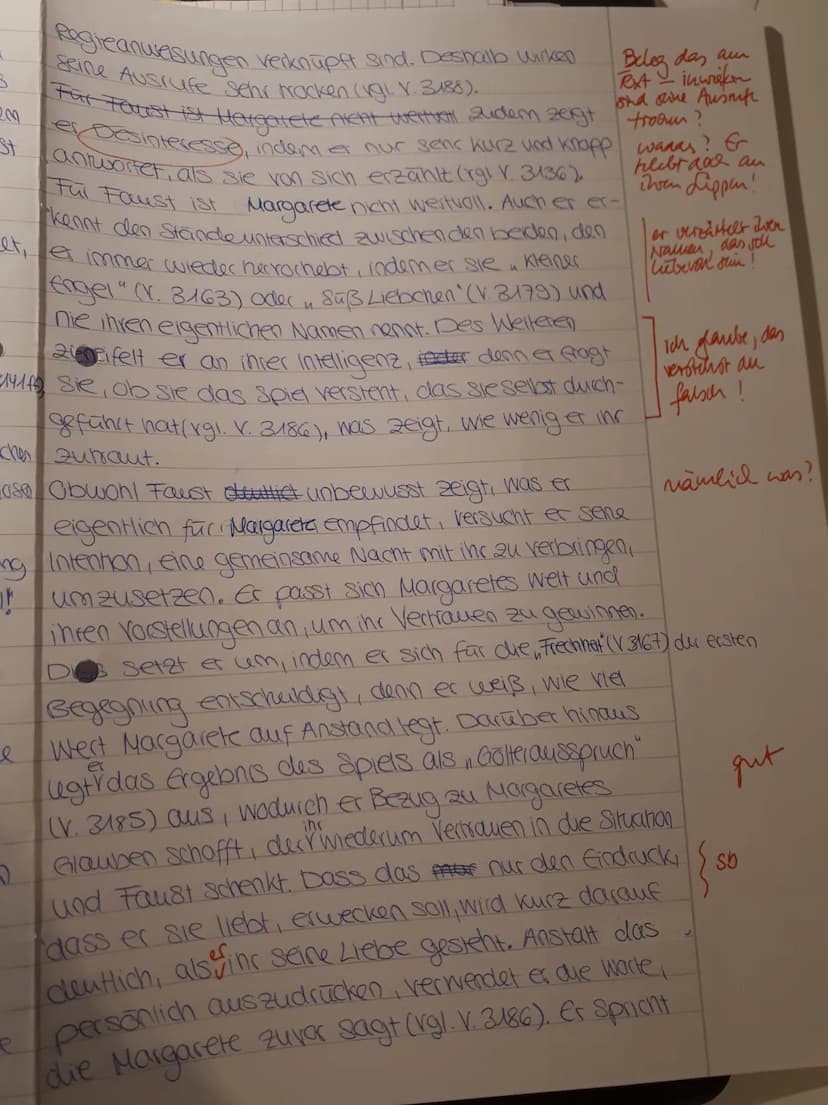 Regieanweisungen verknüpft sind. Deshalb wirken
seine Ausrufe sehr trocken (vgl. V. 3188).
Für Faust ist Margarete nicht wertvoll Zudem zeigt
er Desinteresse, indem er nur sehr kurz und knapp
antwortet, als sie von sich erzählt (vgl. V. 3136).
Für Faust ist Margarete nicht wertvoll. Auch er er-
kennt den Ständeunterschied zwischen den beiden, den
er immer wieder hervorhebt, indem er sie „kleiner
Engel" (V. 3163) oder „Süß Liebchen" (V 3179) und
nie ihren eigentlichen Namen nennt. Des Weiteren
zweifelt er an ihrer Intelligenz, denn er fragt
sie, ob sie das Spiel versteht, das sie selbst durch-
geführt hat (vgl. V. 3186), was zeigt, wie wenig er ihr
zutraut.
Obwohl Faust deutlich unbewusst zeigt, was er
eigentlich für Margarete empfindet, versucht er seine
Intention, eine gemeinsame Nacht mit ihr zu verbringen,
umzusetzen. Er passt sich Margaretes Welt und
ihren Vorstellungen an, um ihr Vertrauen zu gewinnen.
Das setzt er um, indem er sich für die „Frechheit" (V 3167) der ersten
Begegnung entschuldigt, denn er weiß, wie viel
Wert Margarete auf Anstand legt. Darüber hinaus
legt er das Ergebnis des Spiels als „Götterausspruch"
(V. 3185) aus, wodurch er Bezug zu Margaretes
Glauben schafft, der ihr wiederum Vertrauen in die Situation
und Faust schenkt. Dass das nur den Eindruck,
dass er sie liebt, erwecken soll, wird kurz darauf
deutlich, als er ihr seine Liebe gesteht. Anstatt das
persönlich auszudrücken, verwendet er die Worte,
die Margarete zuvor sagt (vgl. V. 3186). Er spricht
Beleg das am
Text – inwiefern
sind seine Ausrufe
trocken?
wann? Er
klebt doch an
ihren Lippen!
er verzärtelt ihren
Namen, das soll
liebevoll sein!
ich glaube, das
verstehst du
falsch!
nämlich was?
gut
sb